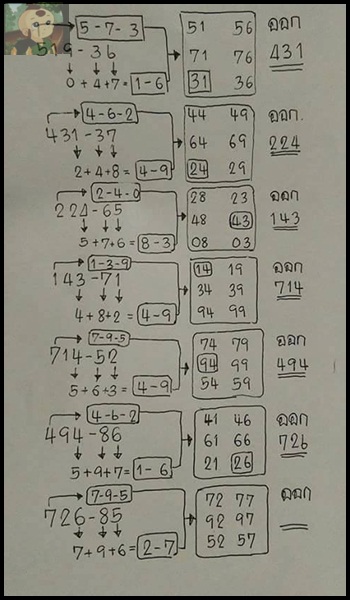 5-7-3 51 56 ออก
519-36 71 76 431
0+4+7= 1-6 31 36
4-6-2 44 49 ออก.
431-37 64 69 224
2+4+8= 4-9 24 29
2-4-0 28 23 ออก
224-65 48 43 143
5+7+6= 8-3 08 03
1-3-9 14 19 ออก
143-71 34 39 714
4+8+2= 4-9 94 99
7-9-5 74 79 ออก
714-52 94 99 494
5+6+3= 4-9 54 59
4-6-2 41 46 ออก
494-86 61 66 726
5+9+7= 1-6 21 26
7-9-5 72 77 ออก
726-85 92 97
7+9+6= 2-7 52 57